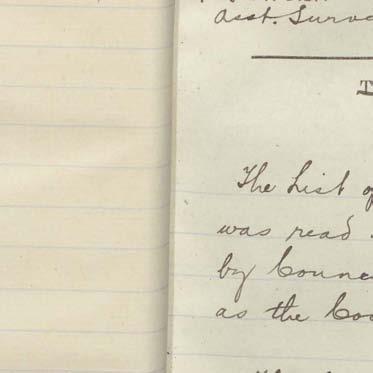 Asst. Surve
The List of
was read
by Counc
as the Cou